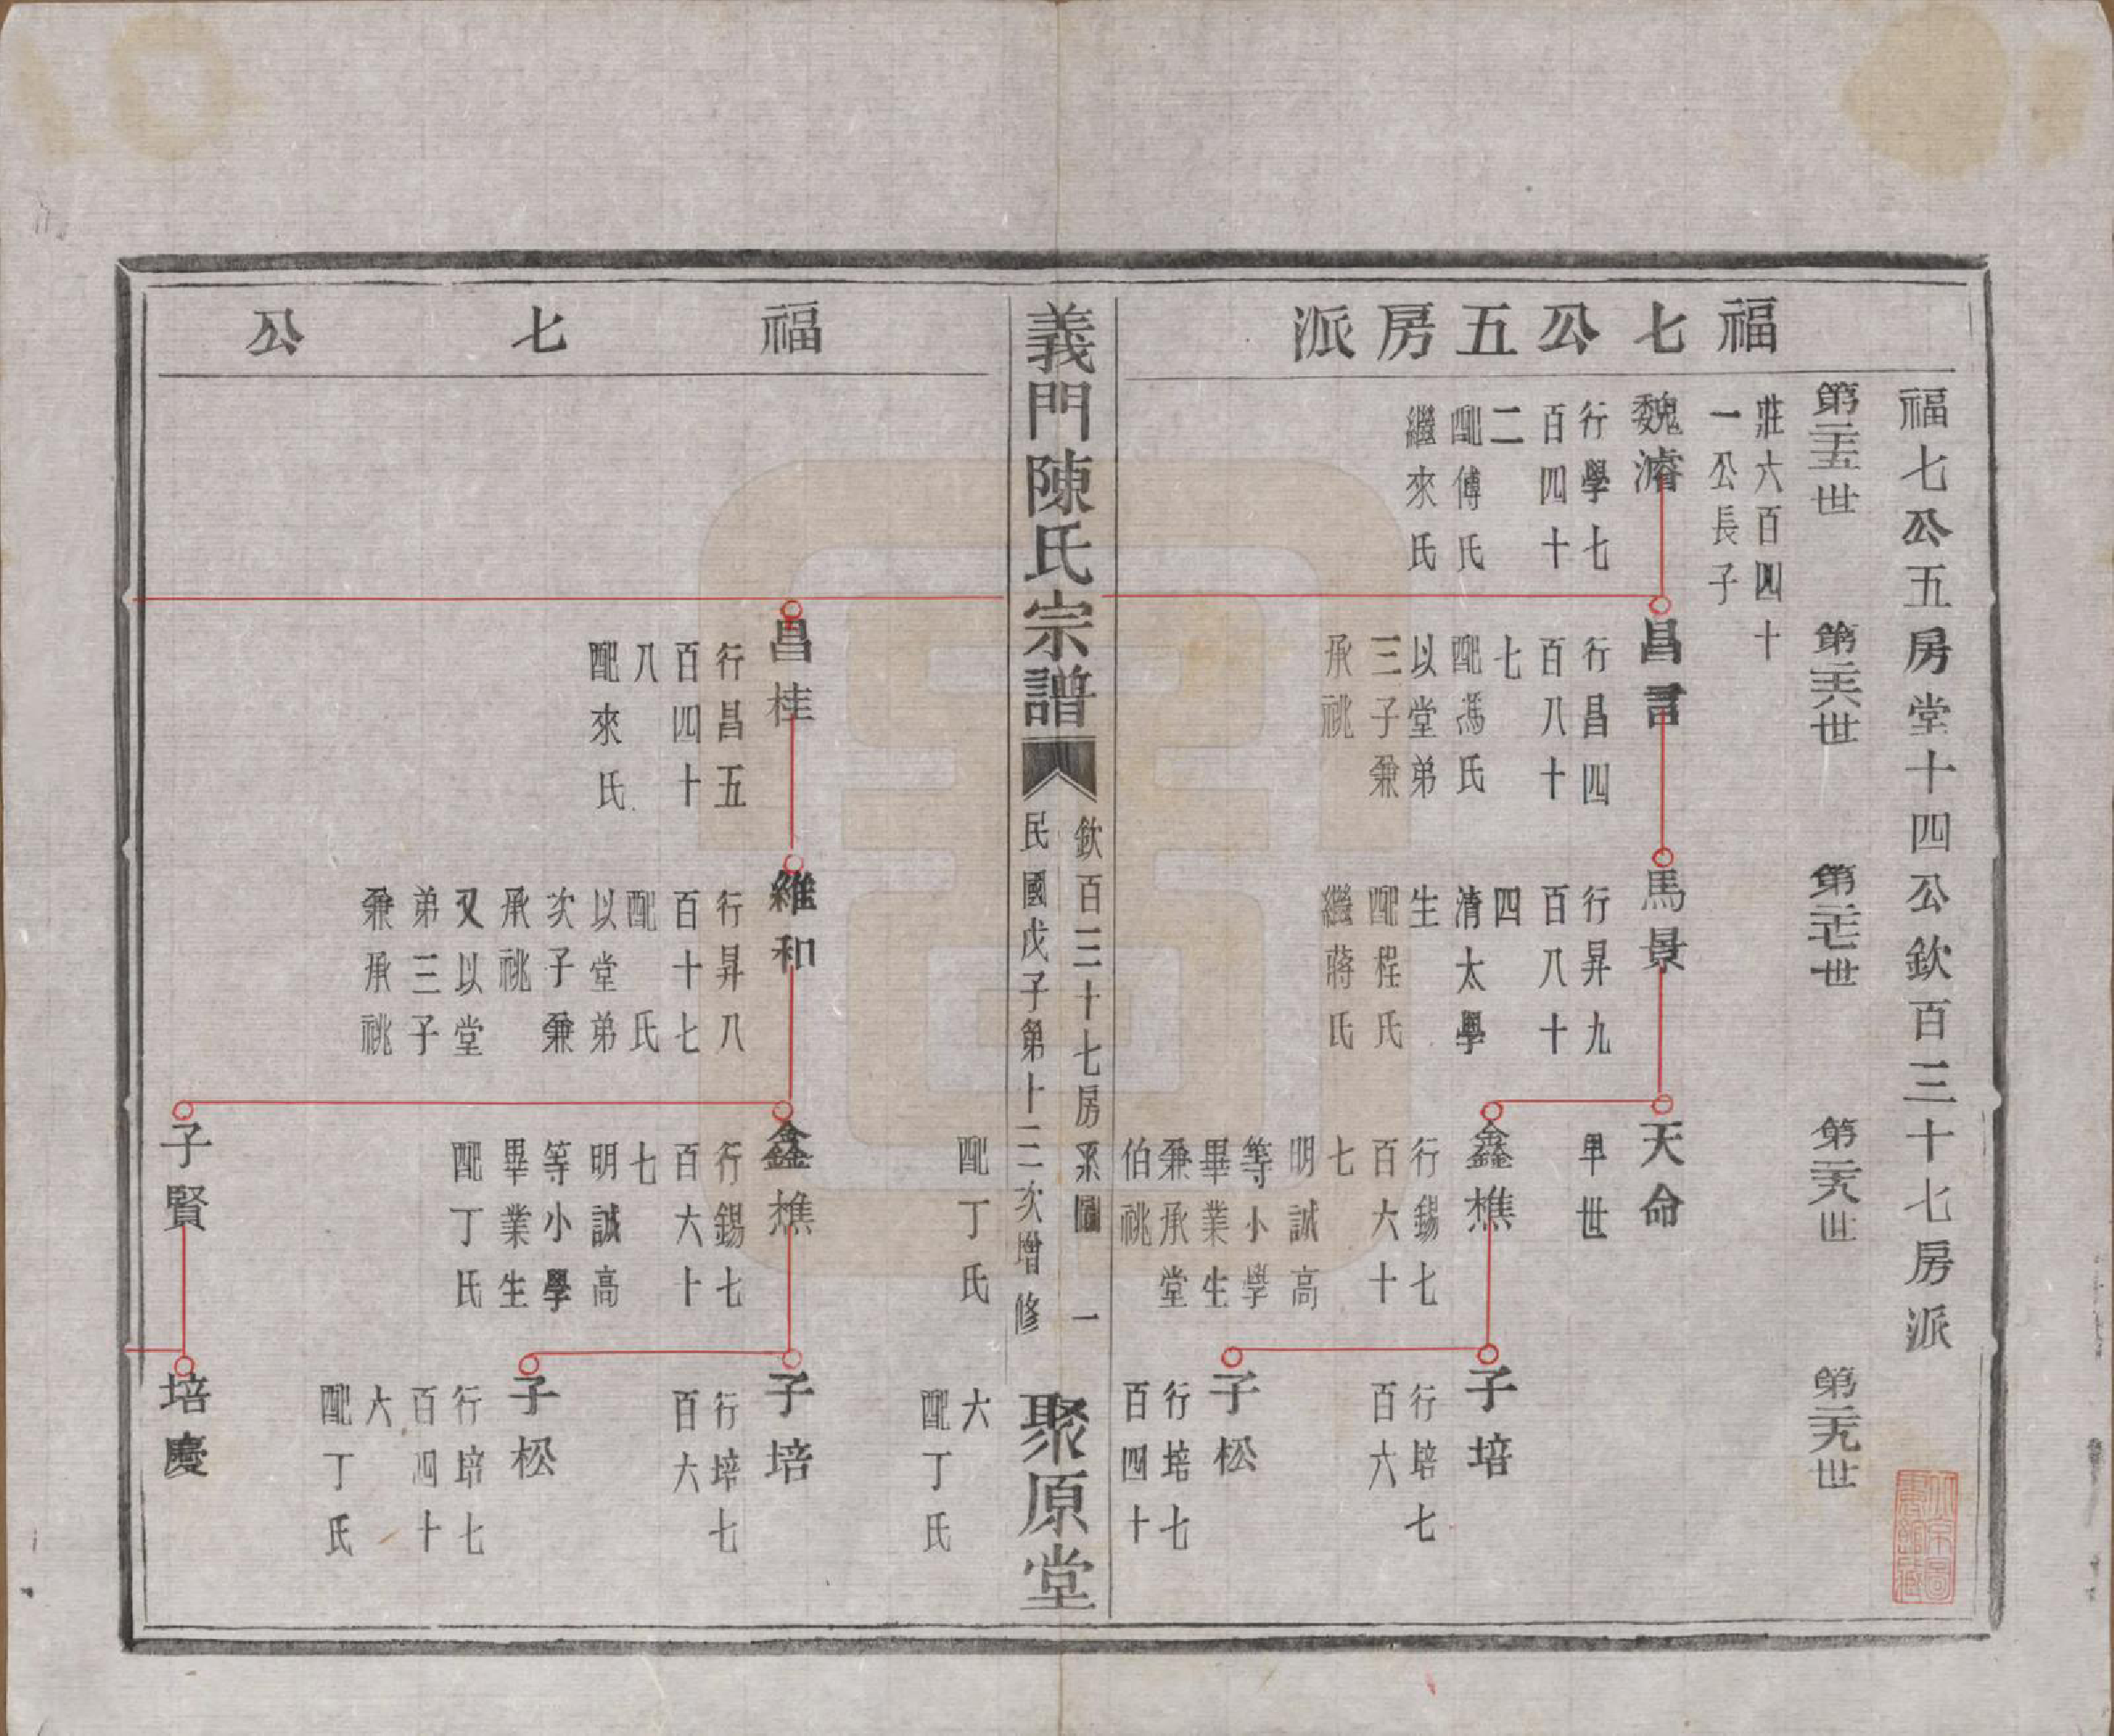 福七公五房派
福七公五房堂十四公欽百三十七房派
第二十五世
第二十六世
第二十七世
第二十八世
第二十九世
莊六百四十
一公長子
魏濬
行學七
百四十
二
配傅氏
繼來氏
昌言
行昌四
百八十
七
配馮氏
以堂弟
三子兼
承祧
馬景
行昇九
百八十
四
清太學
生
配程氏
繼蔣氏
天命
早世
鑫樵
行錫七
百六十
七
明誠高
等小學
畢業生
兼承堂
伯祧
配丁氏
子培
行培七
百六
子松
行培七
百四十
六
配丁氏
義門陳氏宗譜
欽百三十七房系圖 一
民國戊子第十三次增修
聚原堂
福七公
昌桂
行昌五
百四十
八
配來氏
維和
行昇八
百十七
配 氏
以堂弟
次子兼
承祧
又以堂
弟三子
兼承祧
鑫樵
行錫七
百六十
七
明誠高
等小學
畢業生
配丁氏
子賢
子培
行培七
百六
子松
行培七
百四十
六
配丁氏
培慶